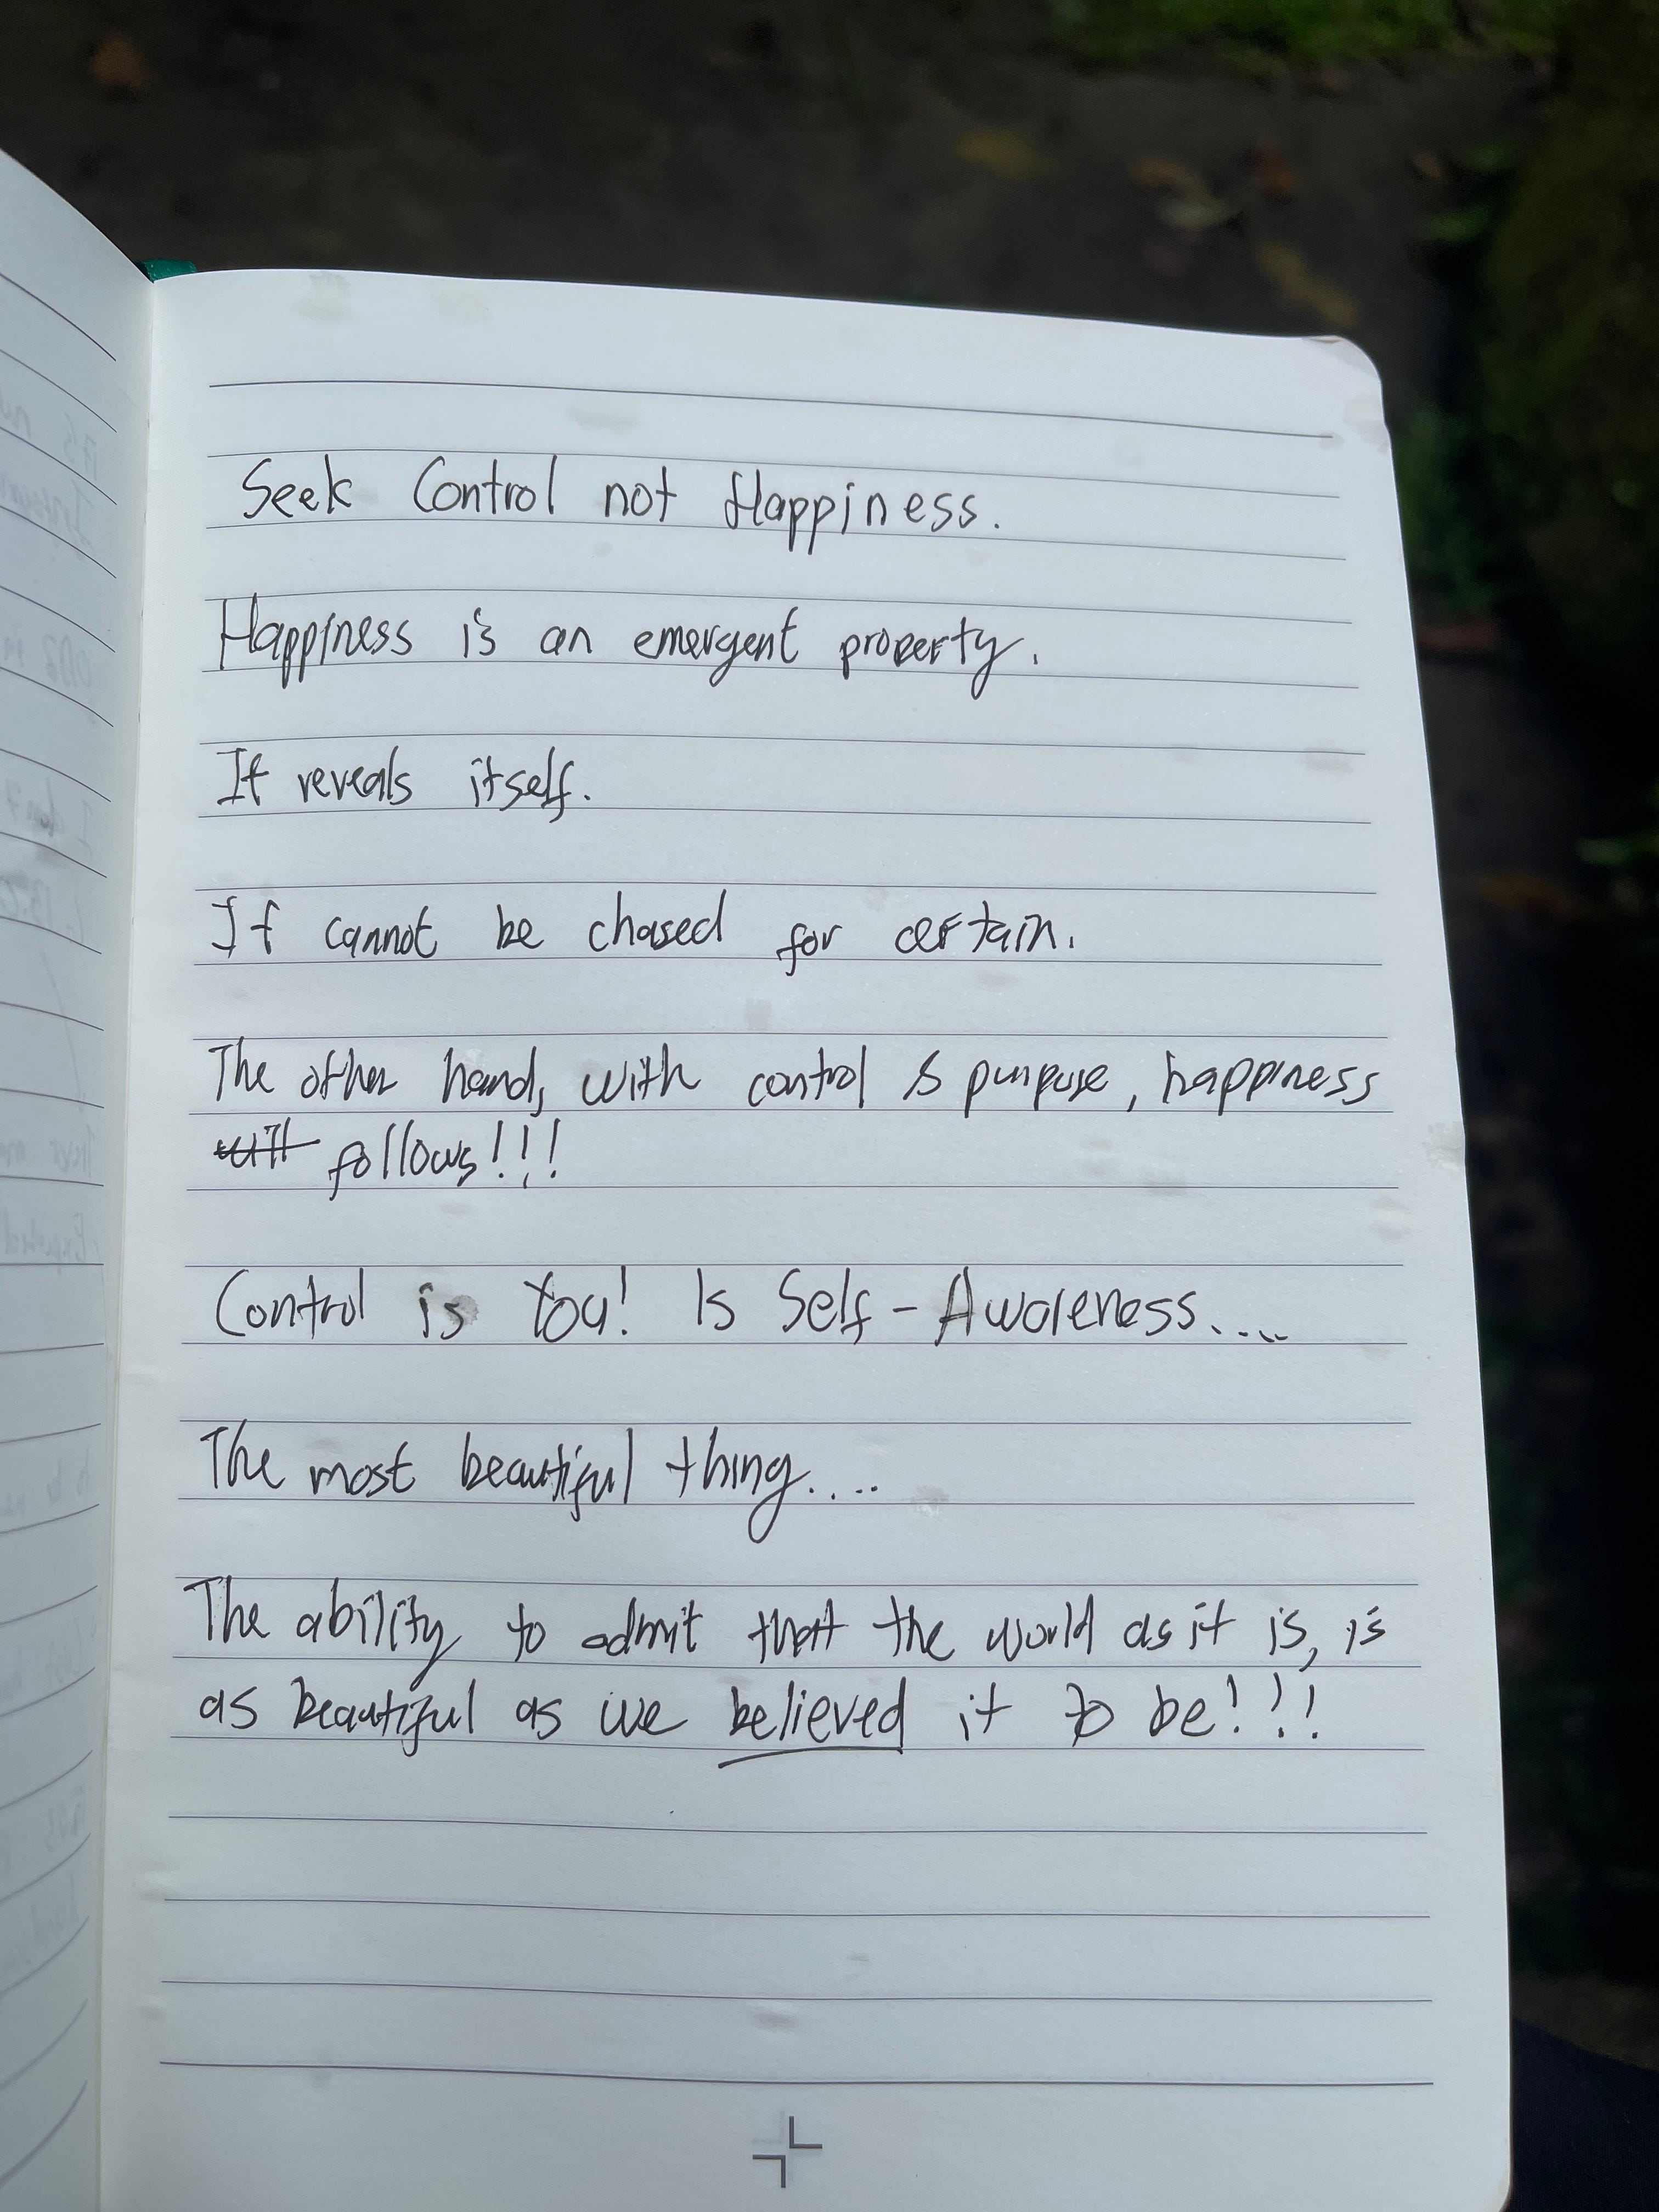 Seek Control not Happiness.
Happiness is an emergent property.
It reveals itself.
It cannot be chased for certain.
The other hand, with control & purpose, happiness
will follows!!!
Control is You! Is Self-Awareness....
The most beautiful thing....
The ability to admit that the world as it is, is
as beautiful as we believed it to be!!!